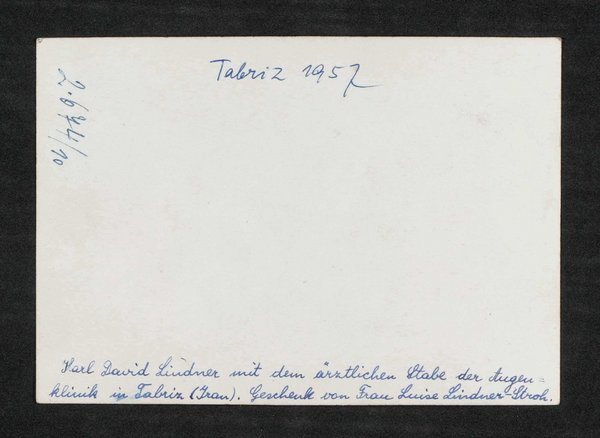 Tabriz 1957
2.644/10
Karl David Lindner mit dem ärztlichen Stabe der Augen=
klinik in Tabriz (Iran). Geschenk von Frau Luise Lindner-Stroh.